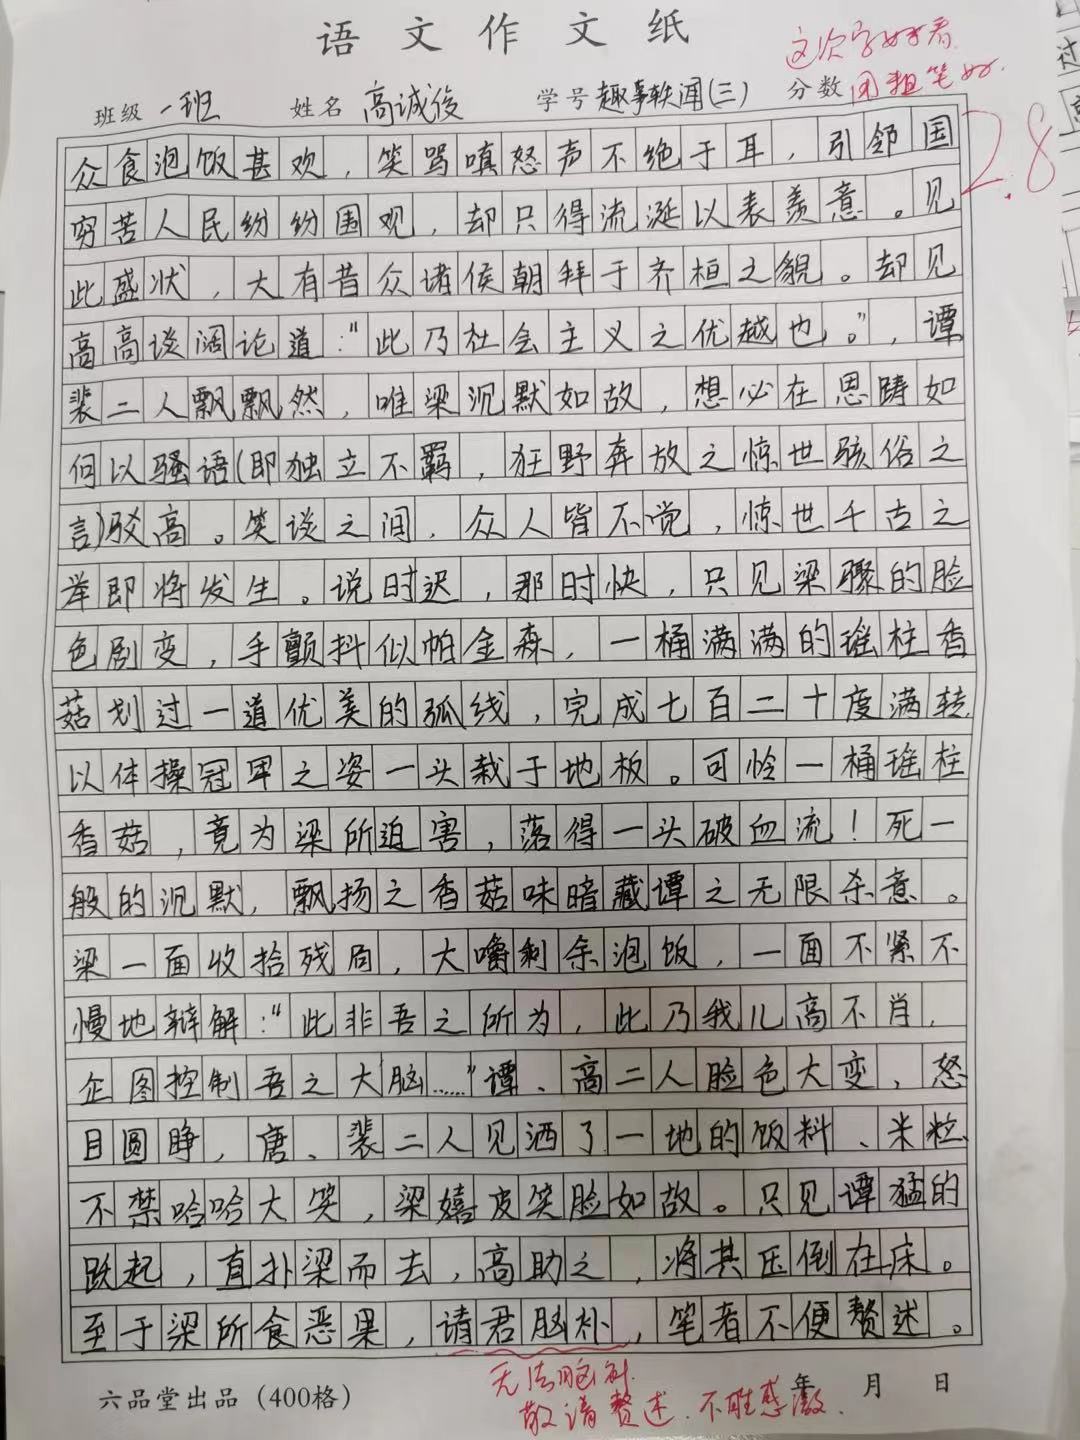 语文作文纸
这次字好看
班级 一班 姓名 高诚俊 学号 趣事轶闻(三) 分数 因粗笔好.
2.8
众食泡饭甚欢，笑骂嗔怒声不绝于耳，引邻国
穷苦人民纷纷围观，却只得流涎以表羡意。见
此盛状，大有昔众诸侯朝拜于齐桓之貌。却见
高高谈阔论道："此乃社会主义之优越也。"，谭
裴二人飘飘然，唯梁沉默如故，想必在思踌如
何以骚语(即独立不羁，狂野奔放之惊世骇俗之
言)驳高。笑谈之间，众人皆不觉，惊世千古之
举即将发生。说时迟，那时快，只见梁骤的脸
色剧变，手颤抖似帕金森，一桶满满的瑶柱香
菇划过一道优美的弧线，完成七百二十度满转
以体操冠军之姿一头栽于地板。可怜一桶瑶柱
香菇，竟为梁所迫害，落得一头破血流！死一
般的沉默，飘扬之香菇味暗藏谭之无限杀意。
梁一面收拾残局，大嚼剩余泡饭，一面不紧不
慢地辩解："此非吾之所为，此乃我儿高不肖，
企图控制吾之大脑……"谭、高二人脸色大变，怒
目圆睁，唐、裴二人见洒了一地的饭料、米粒
不禁哈哈大笑，梁嬉皮笑脸如故。只见谭猛的
跃起，直扑梁而去，高助之，将其压倒在床。
至于梁所食恶果，请君脑补，笔者不便赘述。
无法脑补.
敬请赘述.不胜感激.
六品堂出品（400格） 年 月 日